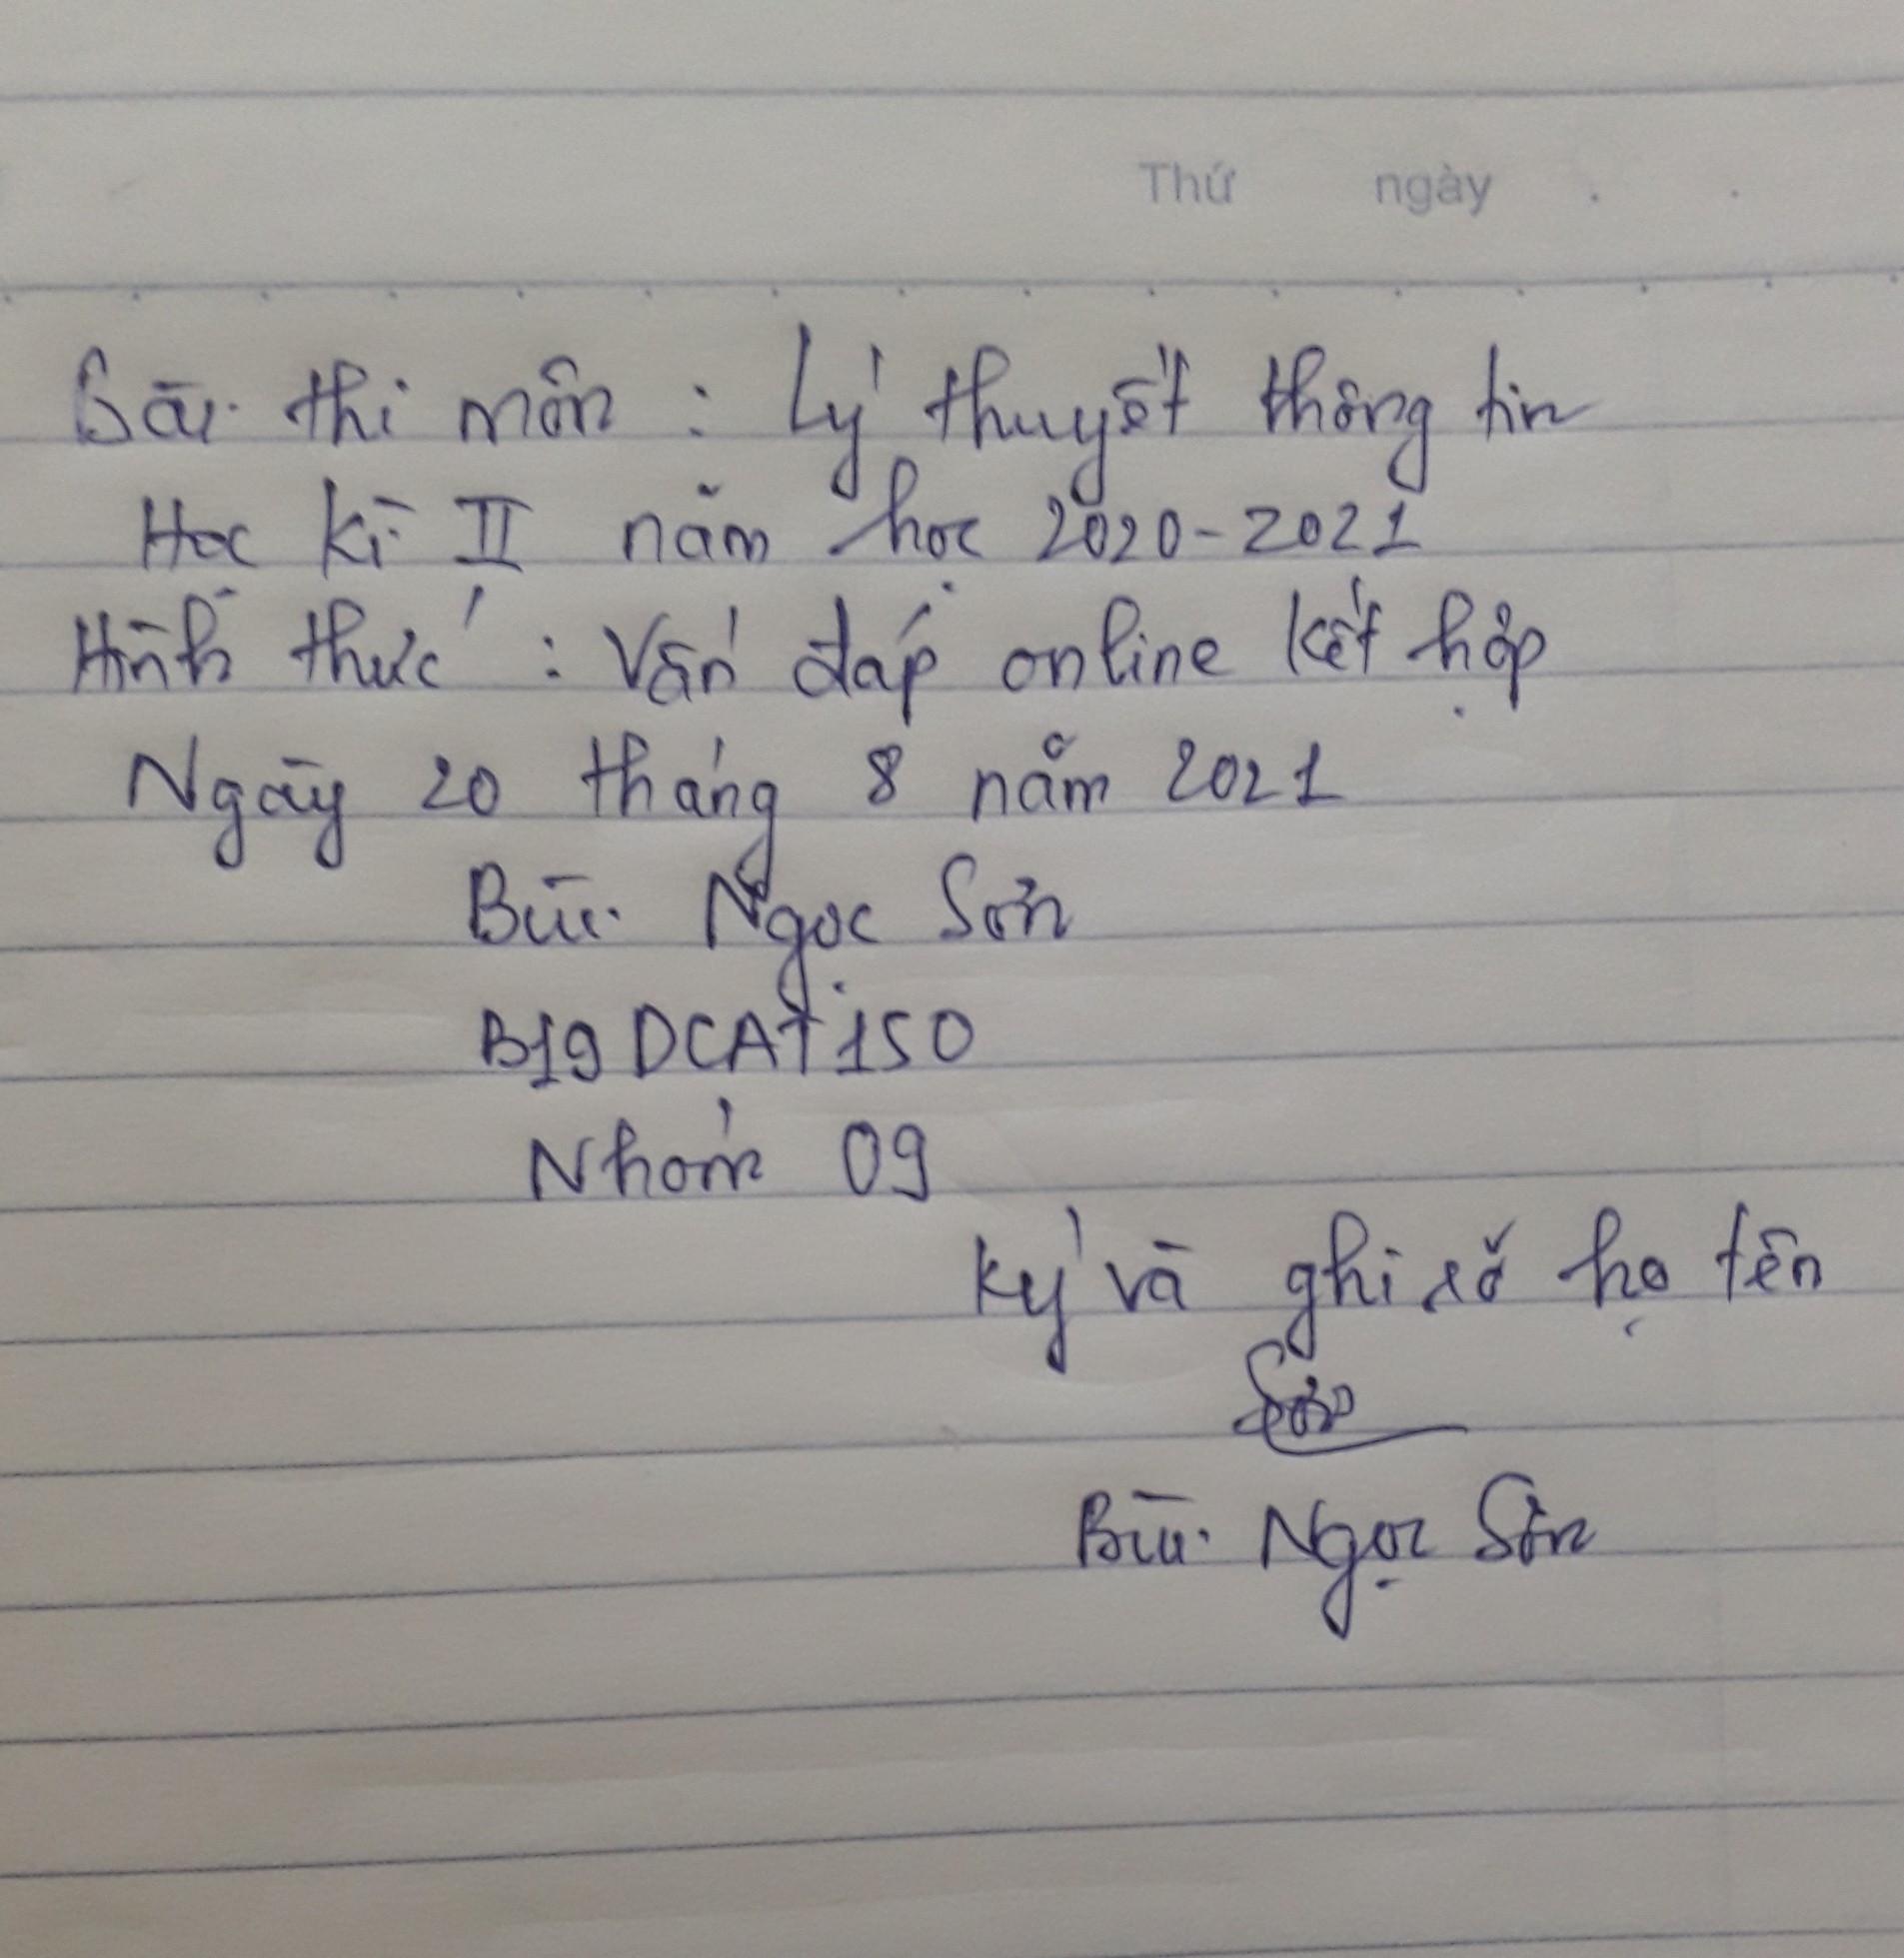 Thứ ngày . .
Bài thi môn : Lý thuyết thông tin
Học kì II năm học 2020-2021
Hình thức : Vấn đáp online kết hợp
Ngày 20 tháng 8 năm 2021
Bùi Ngọc Sơn
B19DCAT150
Nhóm 09
Ký và ghi rõ họ tên
Sơn
Bùi Ngọc Sơn